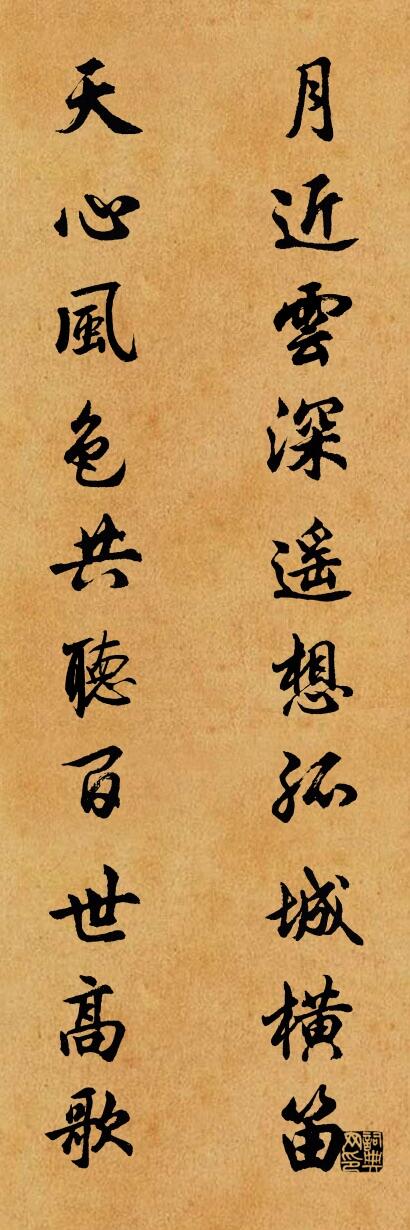 月近雲深遥想孤城橫笛
天心風色共聽百世高歌
詞典网印